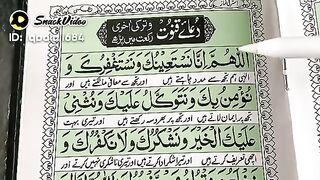 SnackVideo
ID: iqbal.i684
دعائے قنوت
وتر کی آخری رکعت میں پڑھے
اَللّٰهُمَّ اِنَّا نَسْتَعِیْنُكَ وَنَسْتَغْفِرُكَ وَ
الٰہی ہم تجھ سے مدد چاہتے ہیں اور تجھ سے معافی مانگتے ہیں اور
نُؤْمِنُ بِكَ وَنَتَوَكَّلُ عَلَیْكَ وَنُثْنِیْ
تجھ پر ایمان لاتے ہیں اور تجھ پر بھروسہ رکھتے ہیں اور تیری بہت
عَلَیْكَ الْخَیْرَ وَنَشْكُرُكَ وَلَا نَكْفُرُكَ وَ
اچھی تعریف کرتے ہیں اور تیرا شکر کرتے ہیں اور تیری ناشکری نہیں کرتے اور